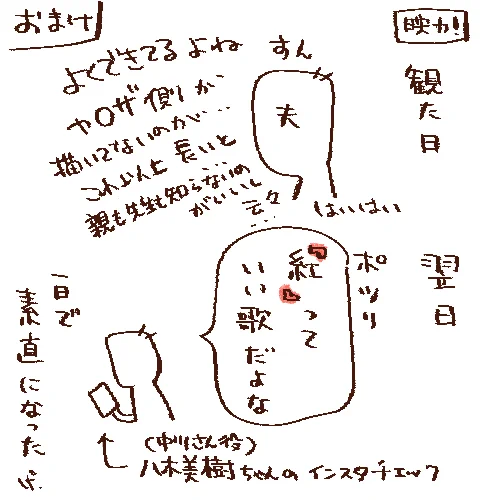 おまけ
映カ!
観た日
すん
夫
よくできてるよね
ヤクザ側しか
描いてないのが…
これ以上長いと
親も先生も知らないの
がいいし
云々…
はいはい
翌日
ポツリ
紅って
いい歌だよな
一日で
素直になった
(中川さん役)
八木美樹ちゃんのインスタチェック